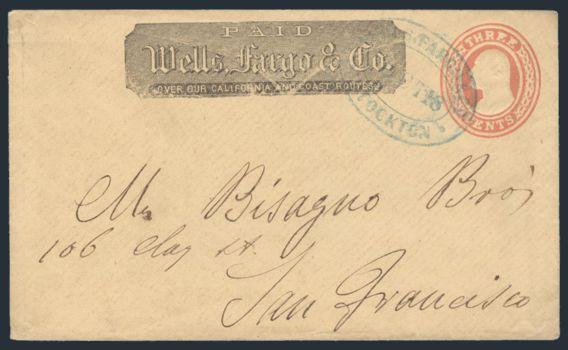 PAID
Wells, Fargo & Co.
OVER OUR CALIFORNIA AND COAST ROUTES
STOCKTON
THREE
CENTS
Mr Bisagno Bros
106 Clay st.
San Francisco